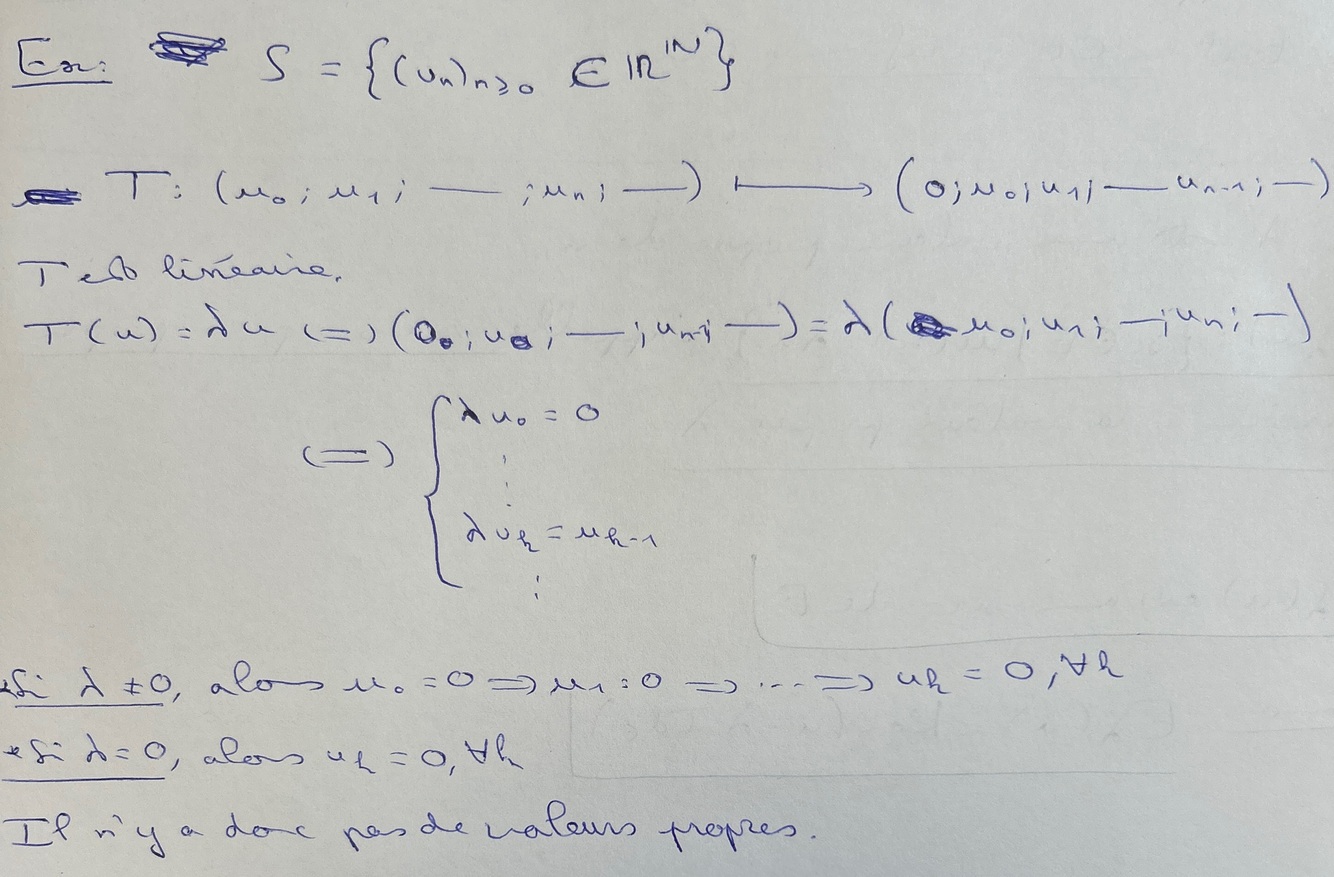 Ex: S = {(un)n≥0 ∈ ℝ^ℕ}
T: (u₀; u₁; — ; uₙ; —) ⟼ (0; u₀; u₁; — uₙ₋₁; —)
T est linéaire.
T(u) = λu (=) (0; u₀; —; uₙ₋₁; —) = λ(u₀; u₁; —; uₙ; —)
(=) { λu₀ = 0
⋮
λuₖ = uₖ₋₁
⋮
* Si λ ≠ 0, alors u₀ = 0 ⇒ u₁ = 0 ⇒ ... ⇒ uₖ = 0, ∀k
* Si λ = 0, alors uₖ = 0, ∀k
Il n'y a donc pas de valeurs propres.